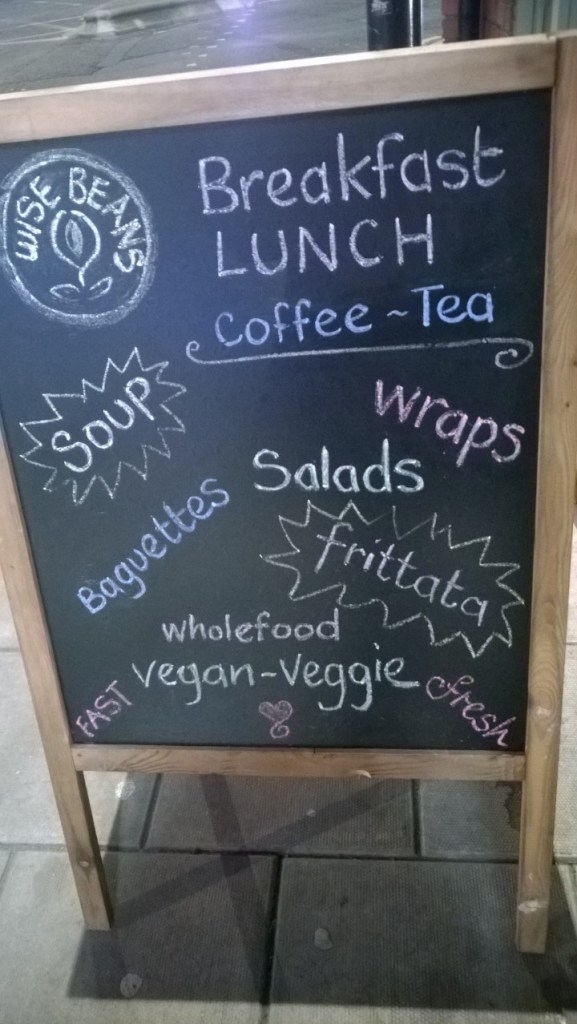 WISE BEANS
Breakfast
LUNCH
Coffee ~ Tea
Soup
Wraps
Salads
Baguettes
frittata
wholefood
vegan - veggie
FAST
fresh